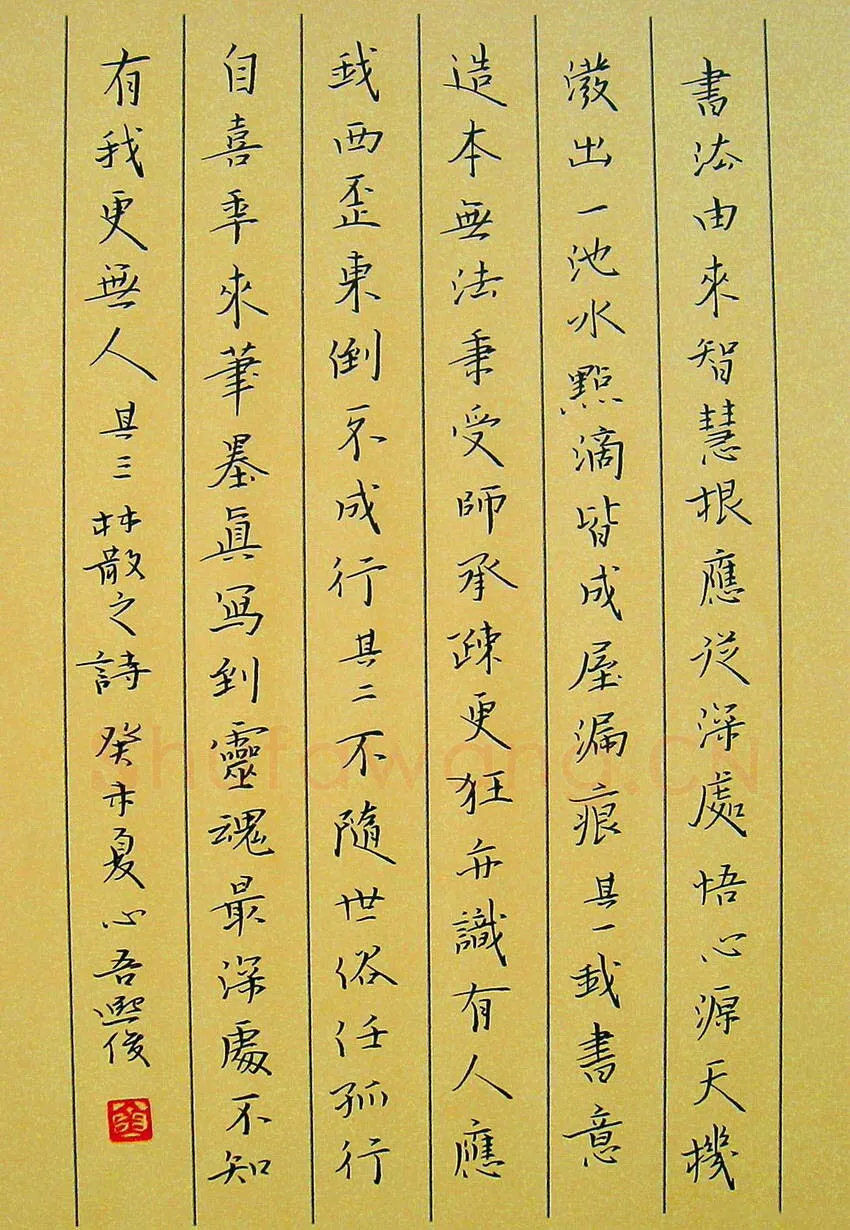 書法由來智慧根應從深處悟心源天機
潑出一池水點滴皆成屋漏痕其一我書意
造本無法秉受師承疎更狂亦識有人應
我西歪東倒不成行其二不隨世俗任孤行
自喜年來筆墨真冩到靈魂最深處不知
有我更無人其三林散之詩癸未夏心吾熙俊
Shufawang.CN